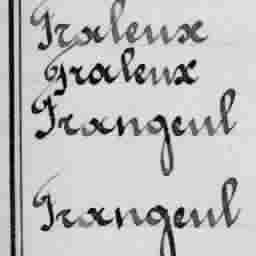 Fraleux
Fraleux
Frangeul
Frangeul